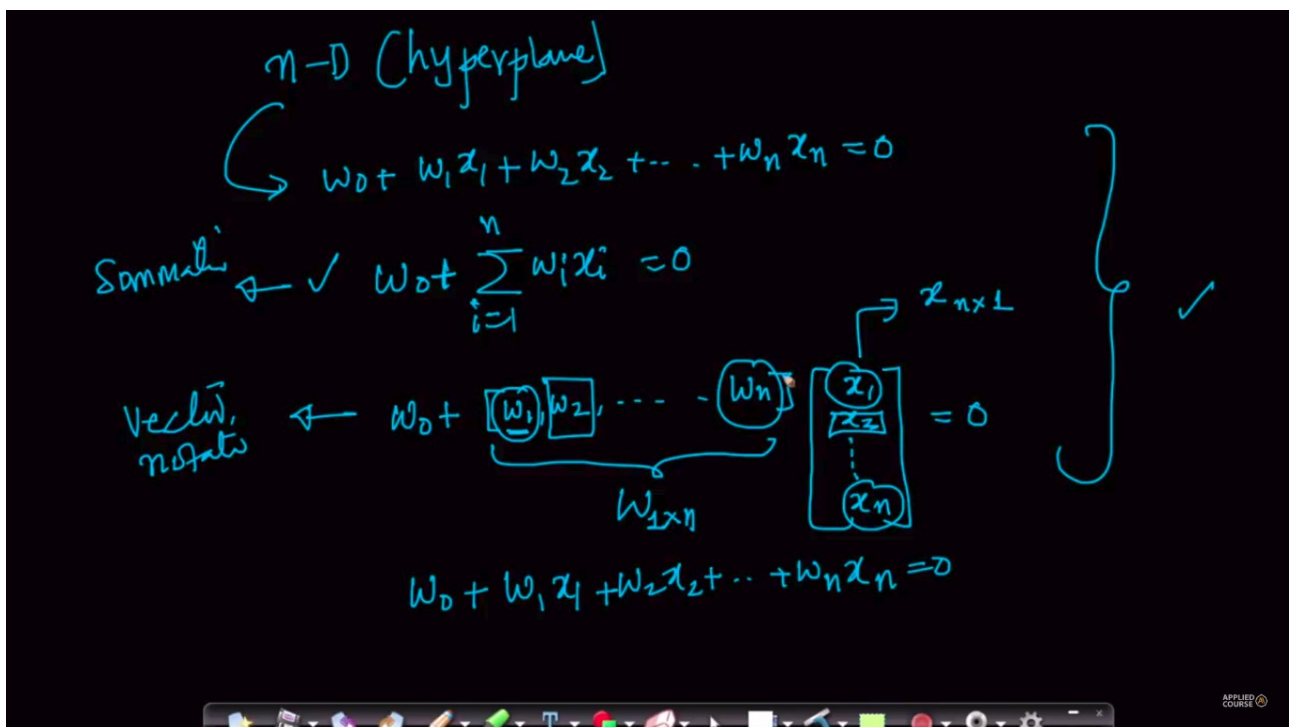 n-D (hyperplane)
w₀ + w₁x₁ + w₂x₂ + -- . + wₙxₙ = 0
Sommati ← ✓ w₀ + ∑ᵢ₌₁ⁿ wᵢxᵢ = 0
xₙₓ₁
notato ← w₀ + [w₁, w₂, ---- - wₙ] [x₁ x₂ xₙ] = 0
W₁ₓₙ
w₀ + w₁x₁ + w₂x₂ + .. + wₙxₙ = 0
APPLIED
COURSE